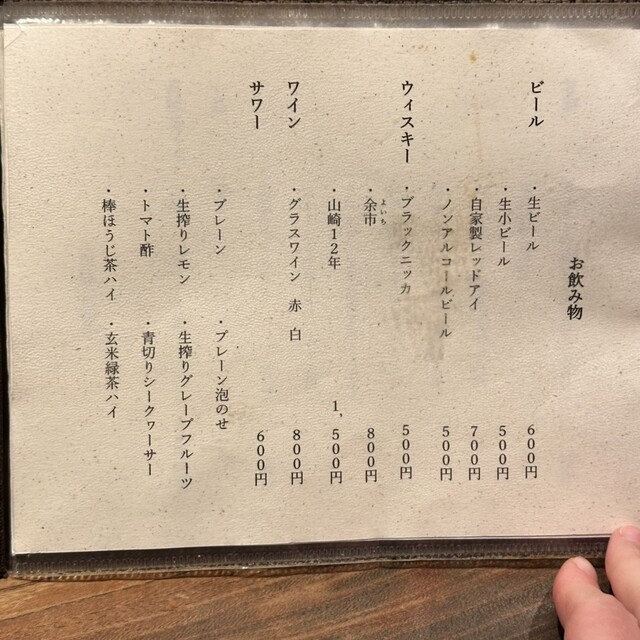 お飲み物
ビール
・生ビール 600円
・生小ビール 500円
・自家製レッドアイ 700円
・ノンアルコールビール 500円
ウィスキー
・ブラックニッカ 500円
・余市 よいち 800円
・山崎12年 1,500円
ワイン
・グラスワイン 赤 白 800円
サワー 600円
・プレーン ・プレーン泡のせ
・生搾りレモン ・生搾りグレープフルーツ
・トマト酢 ・青切りシークヮーサー
・棒ほうじ茶ハイ ・玄米緑茶ハイ